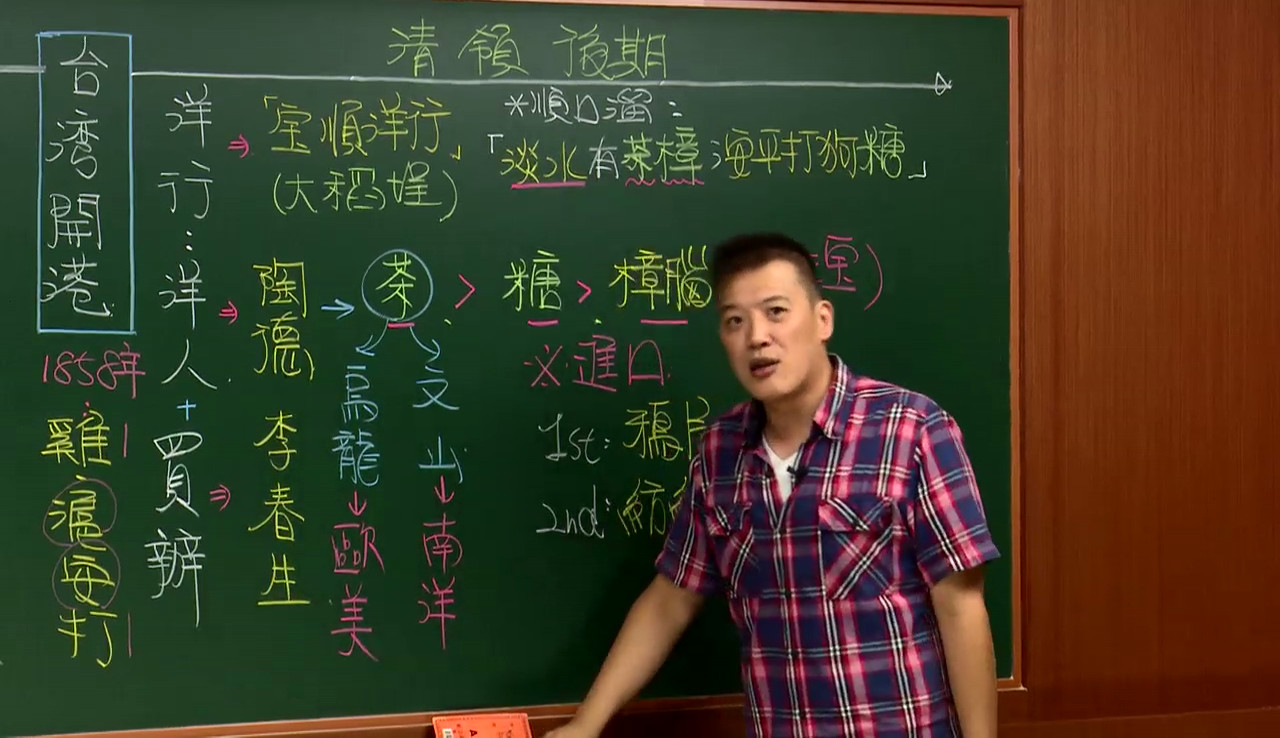 清領後期
台湾開港
1858年
雞
滬
安
打
洋行:洋人+買辦
「宝順洋行」
(大稻埕)
*順口溜:
「淡水有茶樟安平打狗糖」
陶德
李春生
茶 > 糖 > 樟腦
烏龍
歐美
文山
南洋
※進口
1st: 鴉片
2nd: